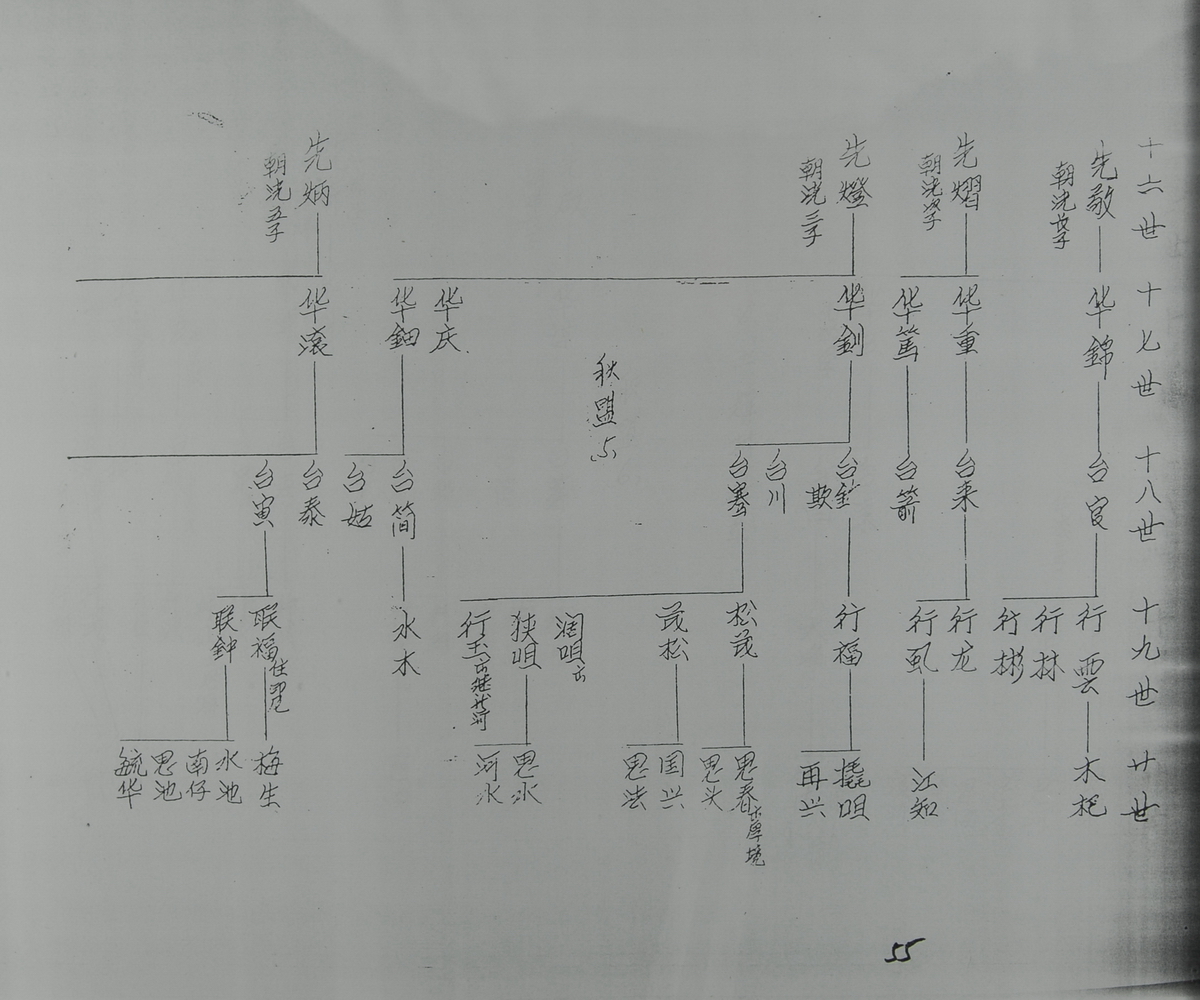 十六世
先敬
先熠
先燈
朝洸三子
先炳
朝洸五子
十七世
华錦
华重
华篤
华釗
华庆
华鈿
华滚
十八世
台官
台来
台箭
台川
台寨
台简
台姑
台泰
台寅
十九世
行雲
行林
行彬
行龙
行虱
行福
松茂
茂松
润咀
狭咀
水木
联福
联鈡
廿世
木杞
江知
撓咀
再兴
思春
思头
国兴
思法
思水
河水
梅生
水池
南仔
思池
毓华
秋盟 5
55